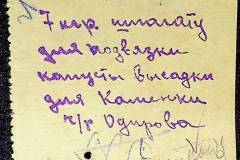 7 кгр. шпагату
для подвязки
капусти высадки
для Каменки
ч/р Одирова